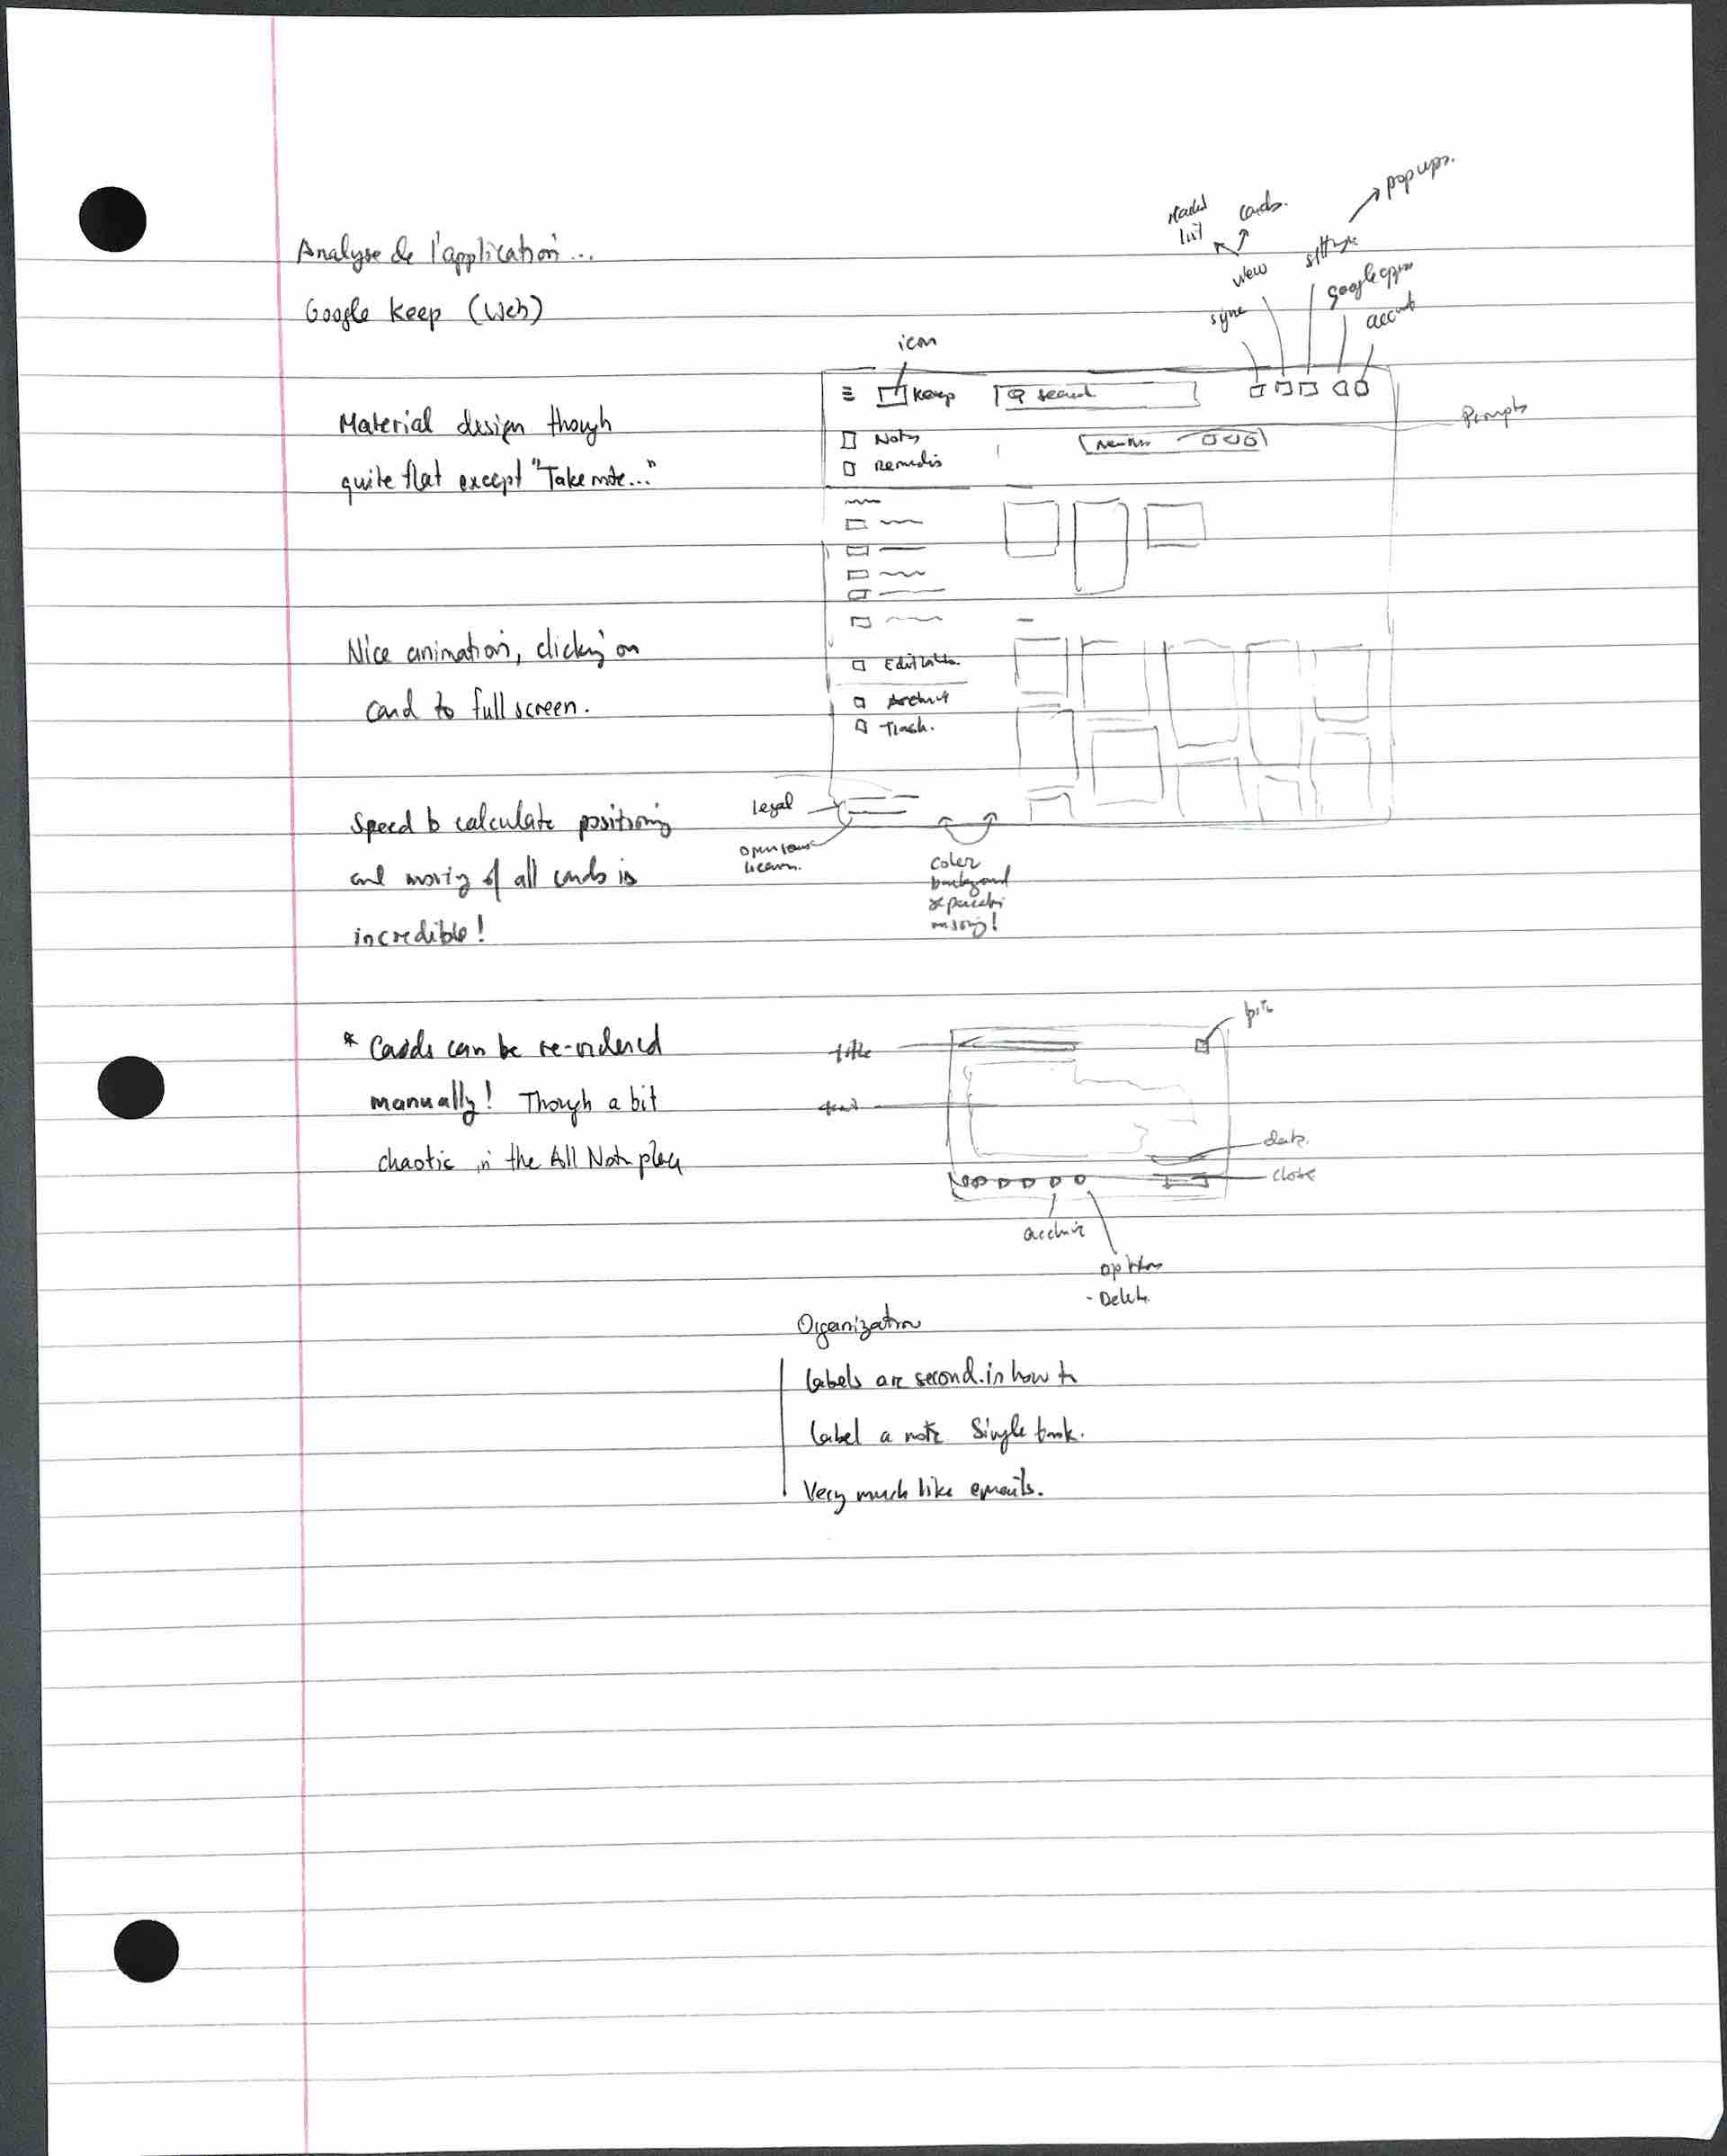 Analyse de l'application...
Google Keep (Web)
Material design though
quite flat except "Take note..."
Nice animation, clicking on
card to full screen.
Speed to calculate positioning
and moving of all cards is
incredible!
* Cards can be re-ordered
manually! Though a bit
chaotic in the All Note place
popups.
list cards.
view settings
sync google apps
account
icon
Keep search
Prompts
Notes
Edit labels.
Archive
Trash.
legal
open source
color
background
missing!
title
pin
text
date.
close
archive
option
- Delete
Organization
labels are second in how to
label a note Single
Very much like emails.